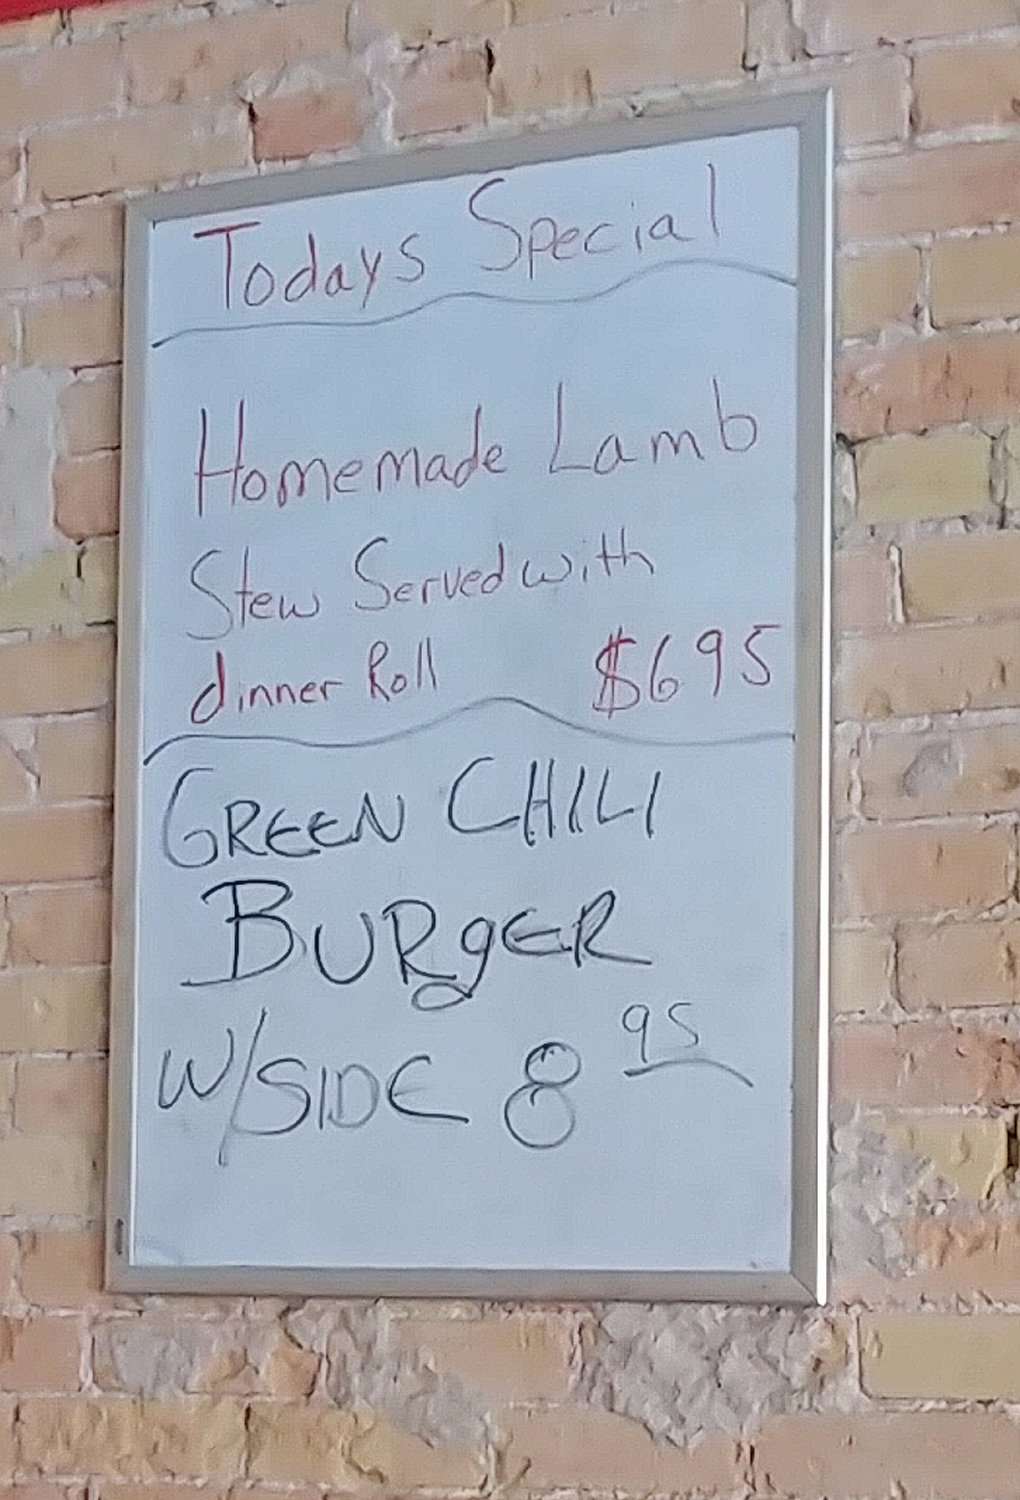 Todays Special
Homemade Lamb
Stew Served with
dinner Roll $695
GREEN CHILI
BURgER
W/SIDE 8 95